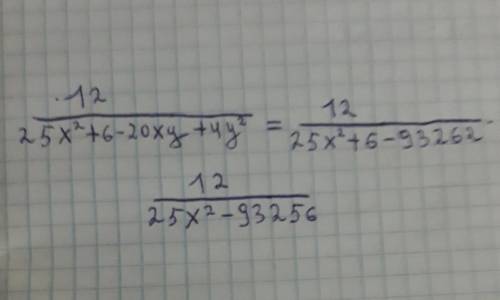 12 / (25x²+6-20xy+4y²) = 12 / (25x²+6-93262)
12 / (25x²-93256)